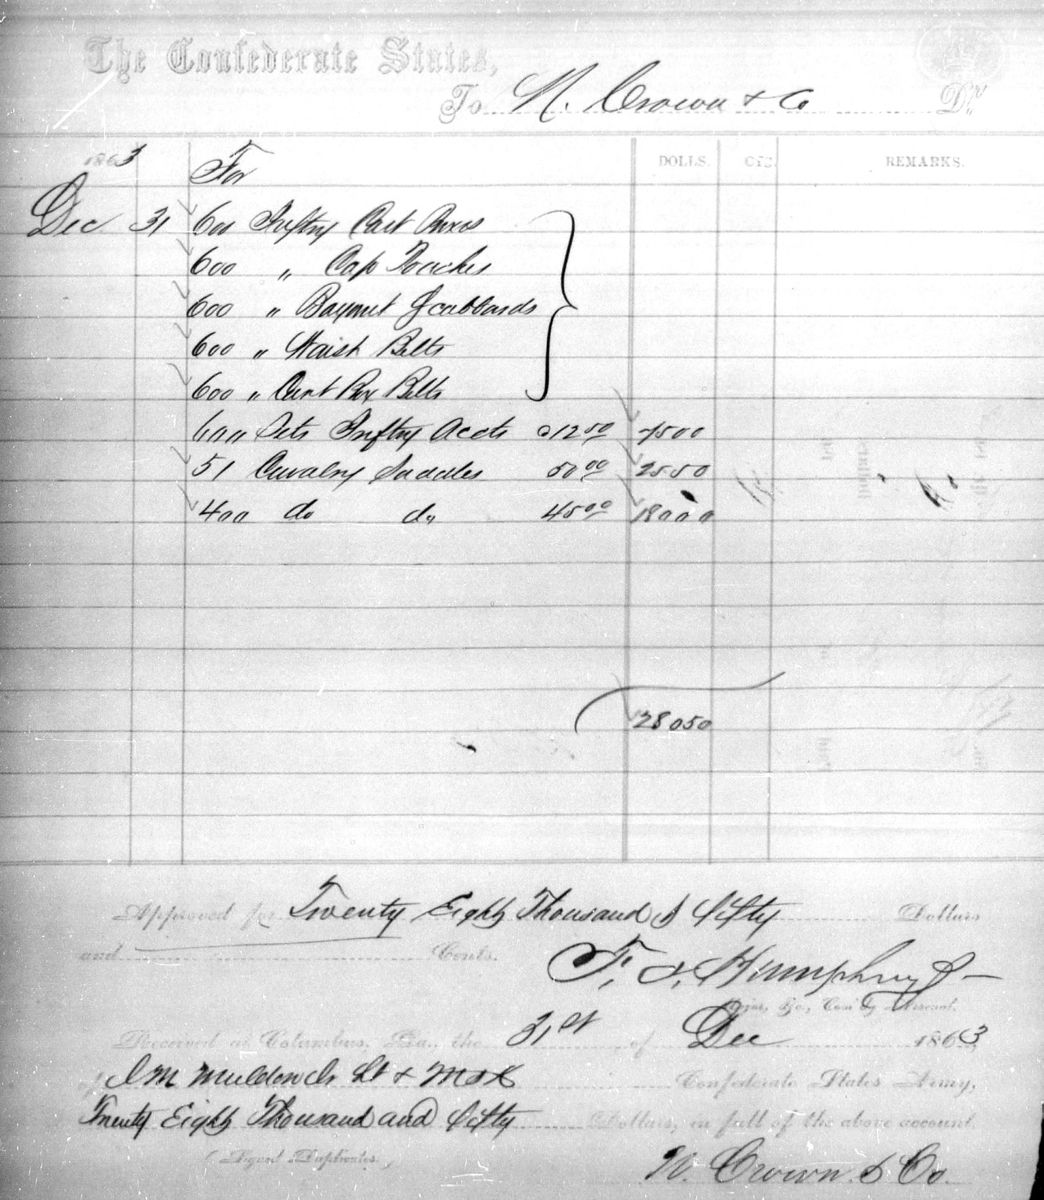 The Confederate States,
To N. Crown & Co Dr.
1863 For DOLLS. CTS. REMARKS.
Dec 31 600 Inftry Cart Boxes
600 " Cap Pouches
600 " Bayonet Scabbards
600 " Waist Belts
600 " Cart Box Belts
600 Sets Inftry Accts 12 50 7500
51 Cavalry Saddles 50 00 2550
400 do do 45 00 18000
28050
Approved for Twenty Eight Thousand & Fifty Dollars
and Cents.
Humphreys
Major, &c., Com'g Arsenal.
Received at Columbus, Ga., the 31st of Dec 1863
of Lt & MSK Confederate States Army,
Twenty Eight Thousand and Fifty Dollars, in full of the above account.
(Signed Duplicates.)
N. Crown & Co.